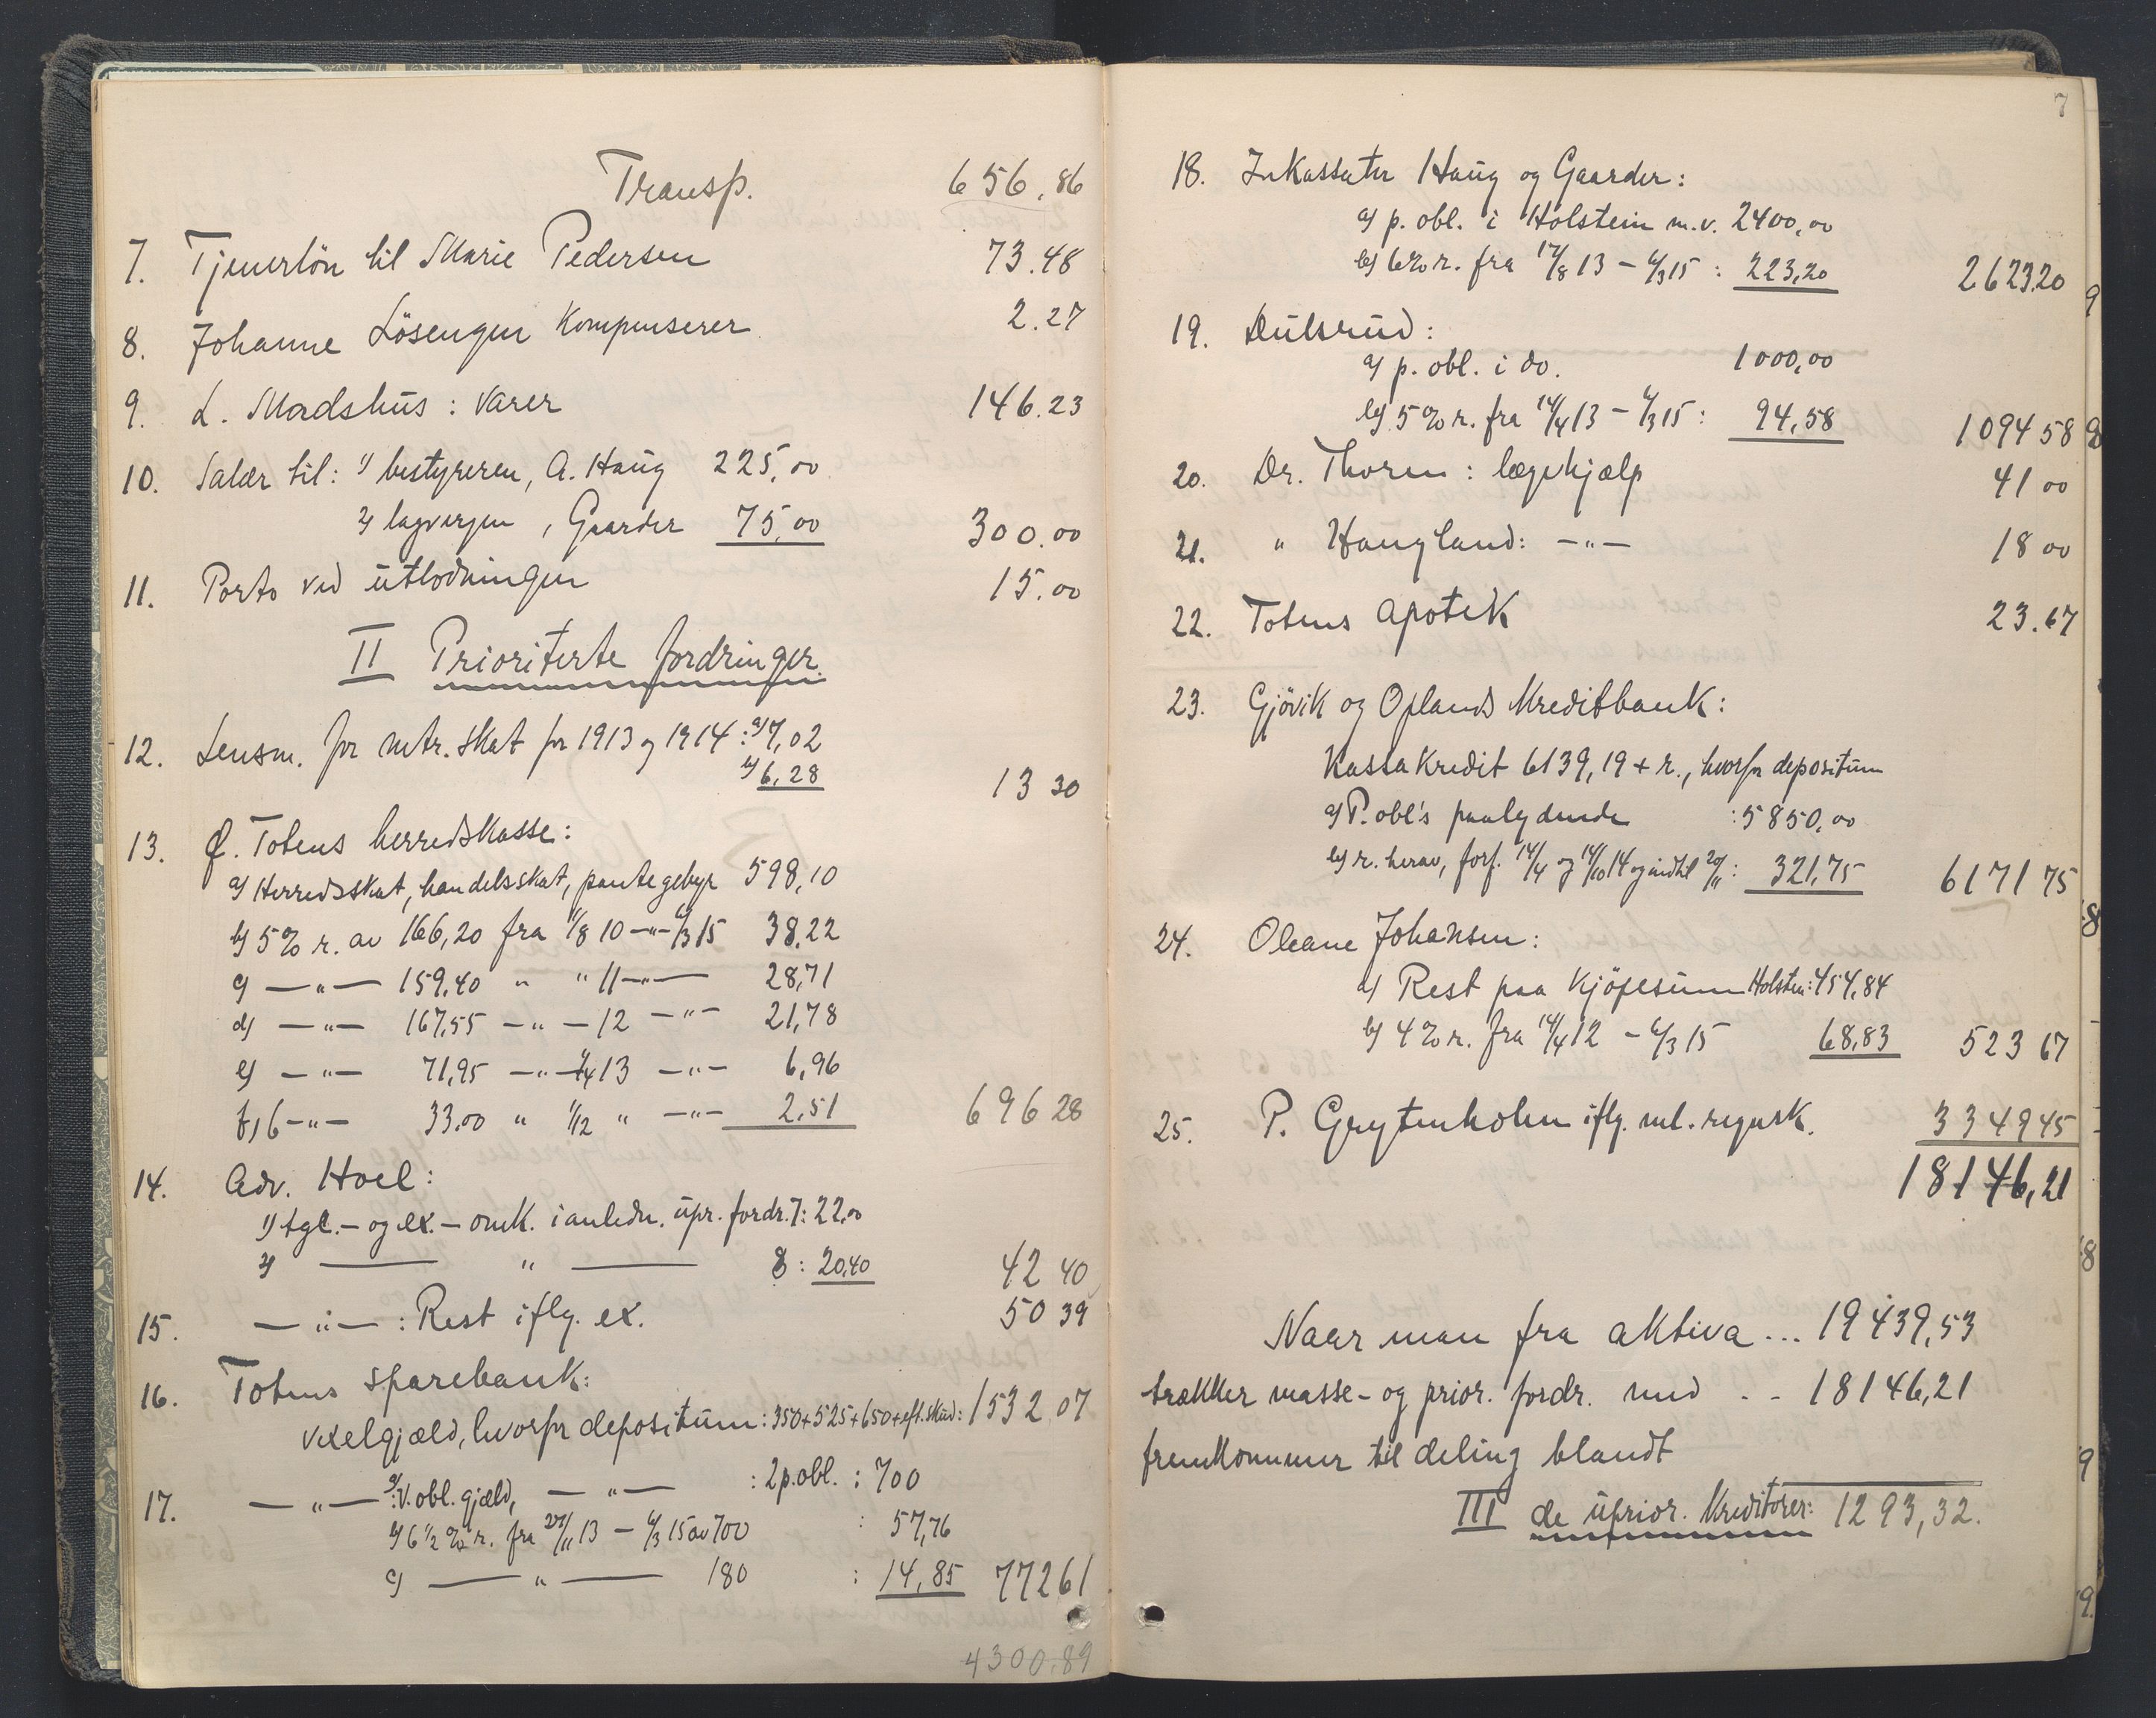 Transp. 656.86
7. Tjenerlön til Marie Pedersen 73.48
8. Johanne Lösengen Kompenserer 2.27
9. L. Madshus : Varer 146.23
10. Salær til: 1) bestyreren, A. Haug 225,00
2) lagvergen, Gaarder 75,00 300.00
11. Porto ved utlodningen 15.00
II Prioriterte fordringer.
12. Lensm. for mtr. skat for 1913 og 1914: a) 7,02
b) 6,28 13 30
13. Ø. Totens herredskasse:
a) Herredsskat, handelsskat, pantegebyr 598,10
b) 5% r. av 166,20 fra 1/8 10 —"— 6/3 15 38,22
c) —"— 159,40 " " 11 —"— 28,71
d) —"— 167,55 —"— 12 —"— 21,78
e) —"— 71,95 —"— 1/4 13 —"— 6,96
f) 6 —"— 33,00 " 1/12 " —"— 2,51 696 28
14. Adv. Hoel:
1) tgl.- og ex.- omk. i anledn. upr. fordr. 7: 22,00
2) —— " —— 8: 20,40 42 40
15. —"— : Rest iflg. ex. 50 39
16. Totens sparebank:
Vexelgjæld, hvorfor depositum: 350+525+650+eft.skud: 1532 07
17. —"— a/: V. obl. gjæld, —"— : 2 p. obl. : 700
b) 6 1/2 % r. fra 27/11 13 – 6/3 15 av 700 : 57,76
c) —— " —— 180 : 14,85 772 61
4300.89
7
18. Inkassator Haug og Gaarder:
a) p. obl. i Holstein m.v. 2400,00
b) 6% r. fra 17/8 13 – 6/3 15 : 223,20 2623.20
19. Dulsrud:
a) p. obl. i do. 1000,00
b) 5% r. fra 14/4 13 – 6/3 15 : 94,58 1094 58
20. Dr. Thoren : lægehjælp 41 00
21. " Haugland: —"— 18 00
22. Totens Apotek 23.67
23. Gjövik og Oplands Kreditbank:
Kassakredit 6139,19 + r., hvorfor depositum
a) P. obl's paalydende : 5850,00
b) r. herav, forf. 14/4 og 14/10 14 og indtil 20/11 : 321,75 6171 75
24. Oleane Johansen:
a) Rest paa Kjöpesum Holsten: 454,84
b) 4% r. fra 14/4 12 – 6/3 15 68,83 523 67
25. P. Grytenholm iflg. vel. regnsk. 3349 45
18146,21
Naar man fra aktiva ... 19439,53
trækker masse- og prior. fordr. med . . 18146,21
fremkommer til deling blandt
III de uprior. Kreditorer: 1293,32.